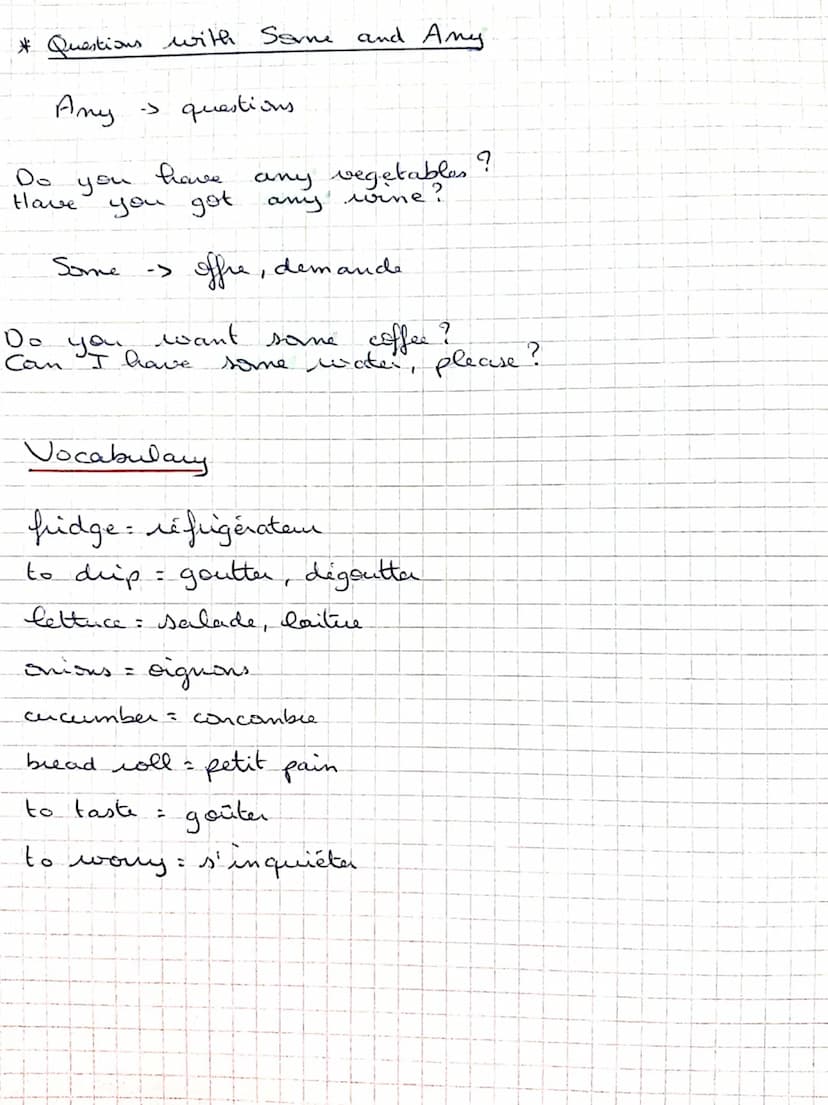 * Questions with Some and Any
Any -> questions
Do you have any vegetables?
Have you got any wine?
Some -> offre, demande
Do you want some coffee?
Can I have some water, please?
Vocabulary
fridge = réfrigérateur
to drip = goutter, dégoutter
lettuce = salade, laitue
onions = oignons
cucumber = concombre
bread roll = petit pain
to taste = goûter
to worry = s'inquiéter